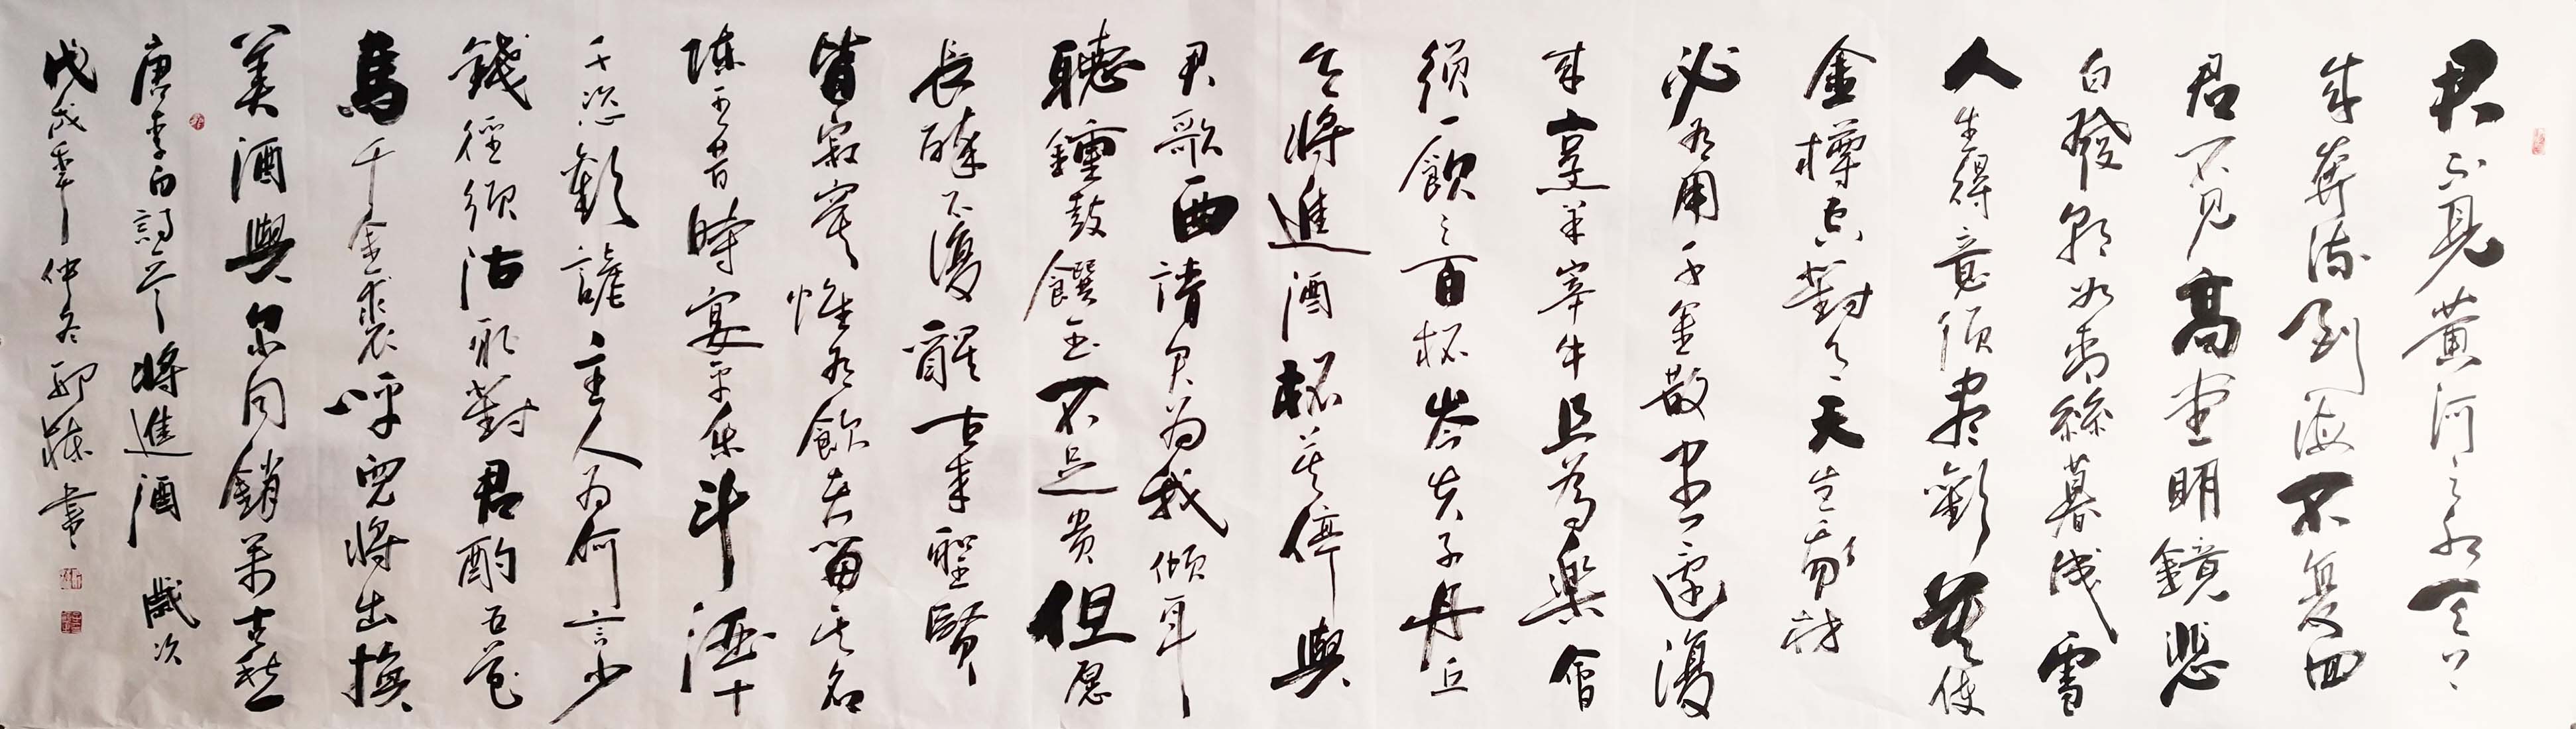 君不見黃河之水天上
來奔流到海不复回
君不见高堂明鏡悲
白發朝如青絲暮成雪
人生得意須盡歡莫使
金樽空對月天生我材
必有用千金散盡還復
來烹羊宰牛且為樂會
須一飲三百杯岑夫子丹丘
生將進酒杯莫停與
君歌一曲請君为我傾耳
聽鐘鼓饌玉不足貴但愿
長醉不復醒古來聖賢
皆寂寞惟有飲者留其名
陳王昔時宴平樂斗酒十
千恣歡謔主人为何言少
錢徑須沽取對君酌五花
馬千金裘呼兒將出換
美酒與尔同銷萬古愁
唐李白詩一首將進酒 歲次
戊戌年仲冬 書